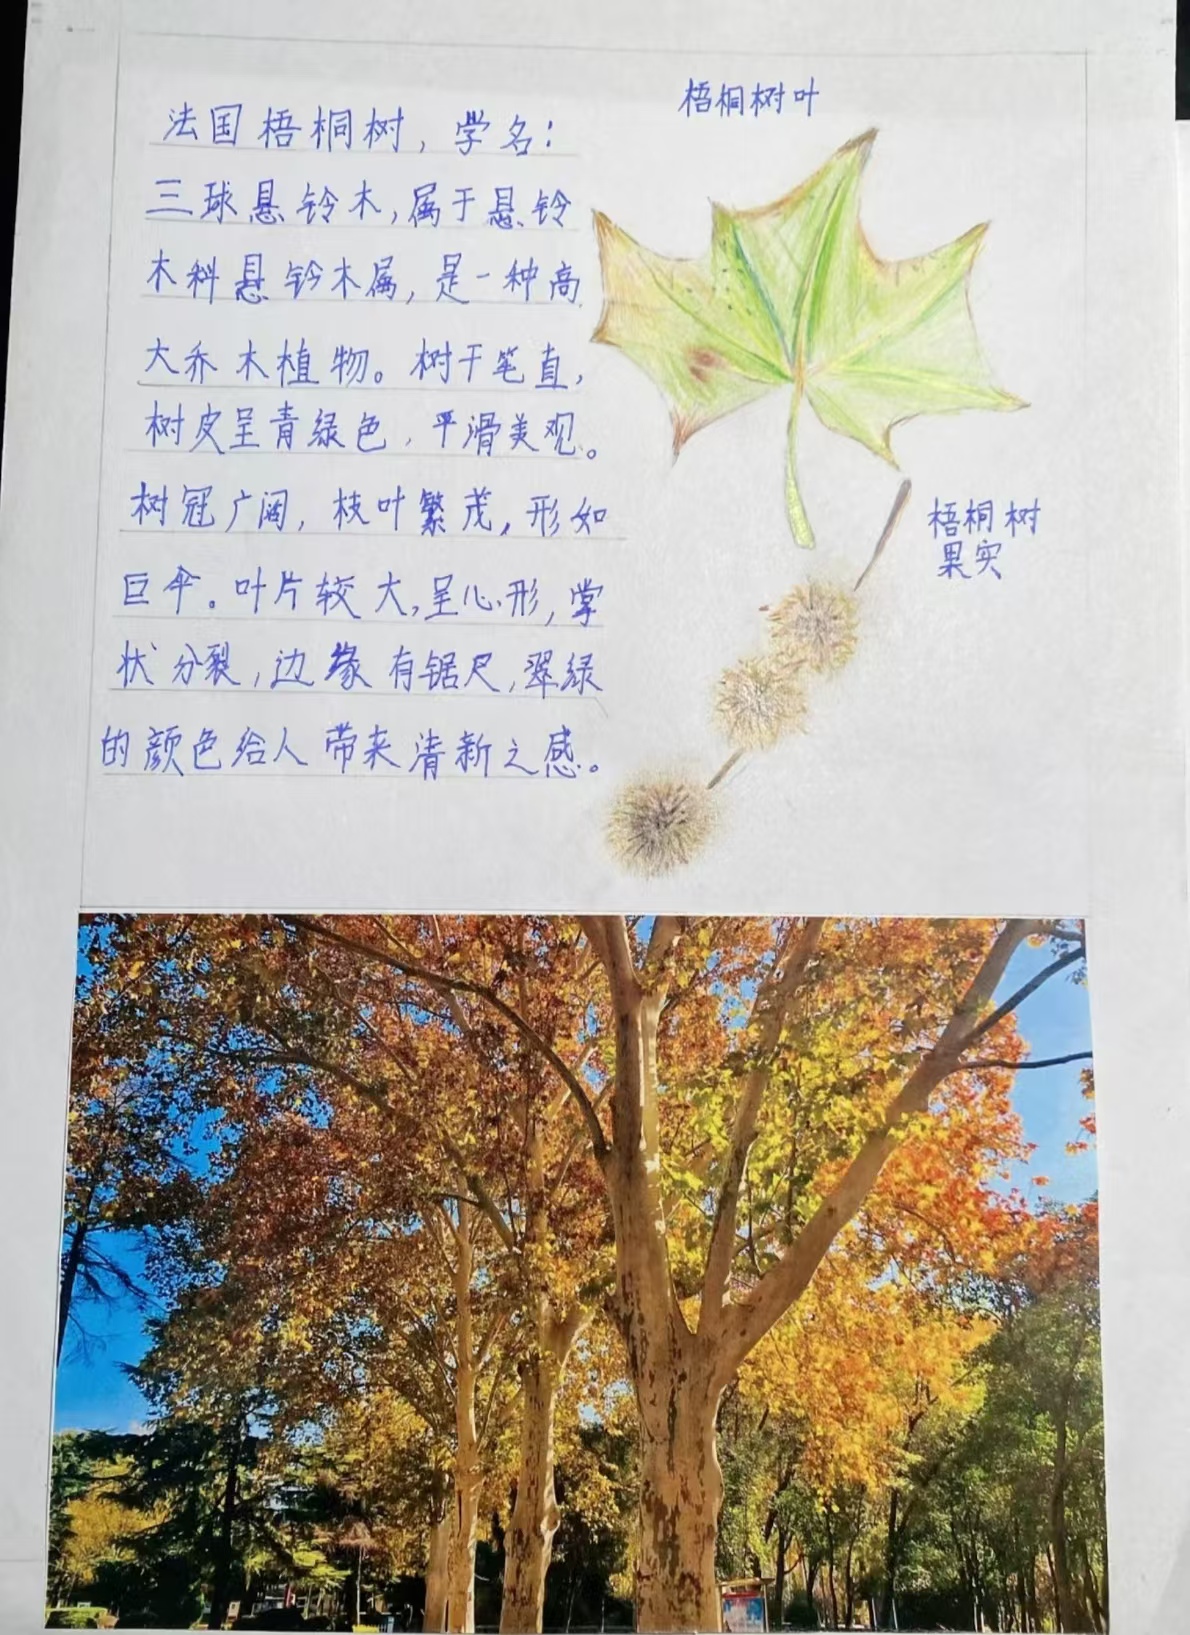 法国梧桐树，学名：
三球悬铃木，属于悬铃
木科悬铃木属，是一种高
大乔木植物。树干笔直，
树皮呈青绿色，平滑美观。
树冠广阔，枝叶繁茂，形如
巨伞。叶片较大，呈心形，掌
状分裂，边缘有锯尺，翠绿
的颜色给人带来清新之感。
梧桐树叶
梧桐树
果实